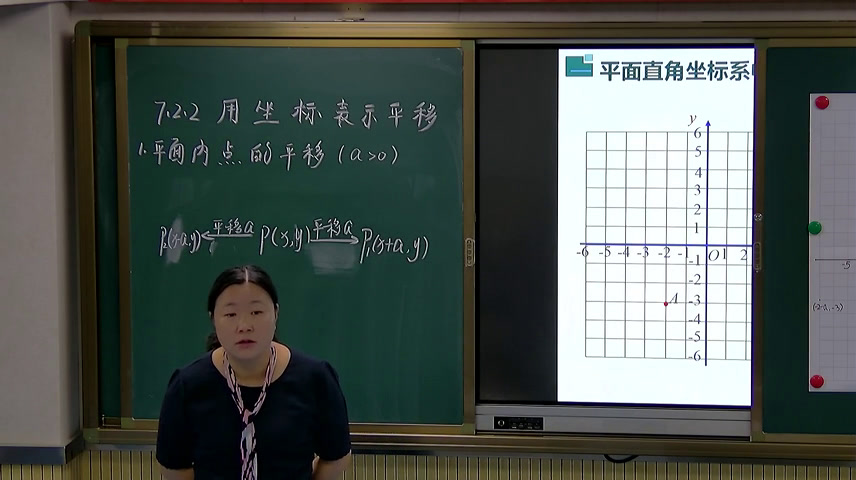 7.2.2 用坐标表示平移
1.平面内点的平移(a>0)
P₂(x-a,y) ←平移a P(x,y) 平移a→ P₁(x+a,y)
平面直角坐标系
y
6
5
4
3
2
1
-6 -5 -4 -3 -2 -1 O 1 2
-1
-2
A -3
-4
-5
-6
-5
(-2-a,-3)